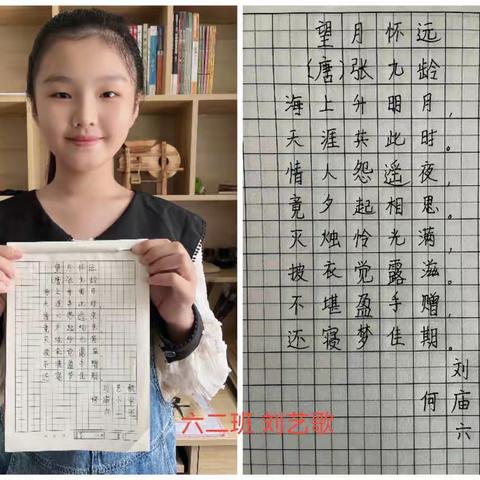 望月怀远
(唐)张九龄
海上升明月，
天涯共此时。
情人怨遥夜，
竟夕起相思。
灭烛怜光满，
披衣觉露滋。
不堪盈手赠，
还寝梦佳期。
刘庙六
何
六二班 刘艺歌